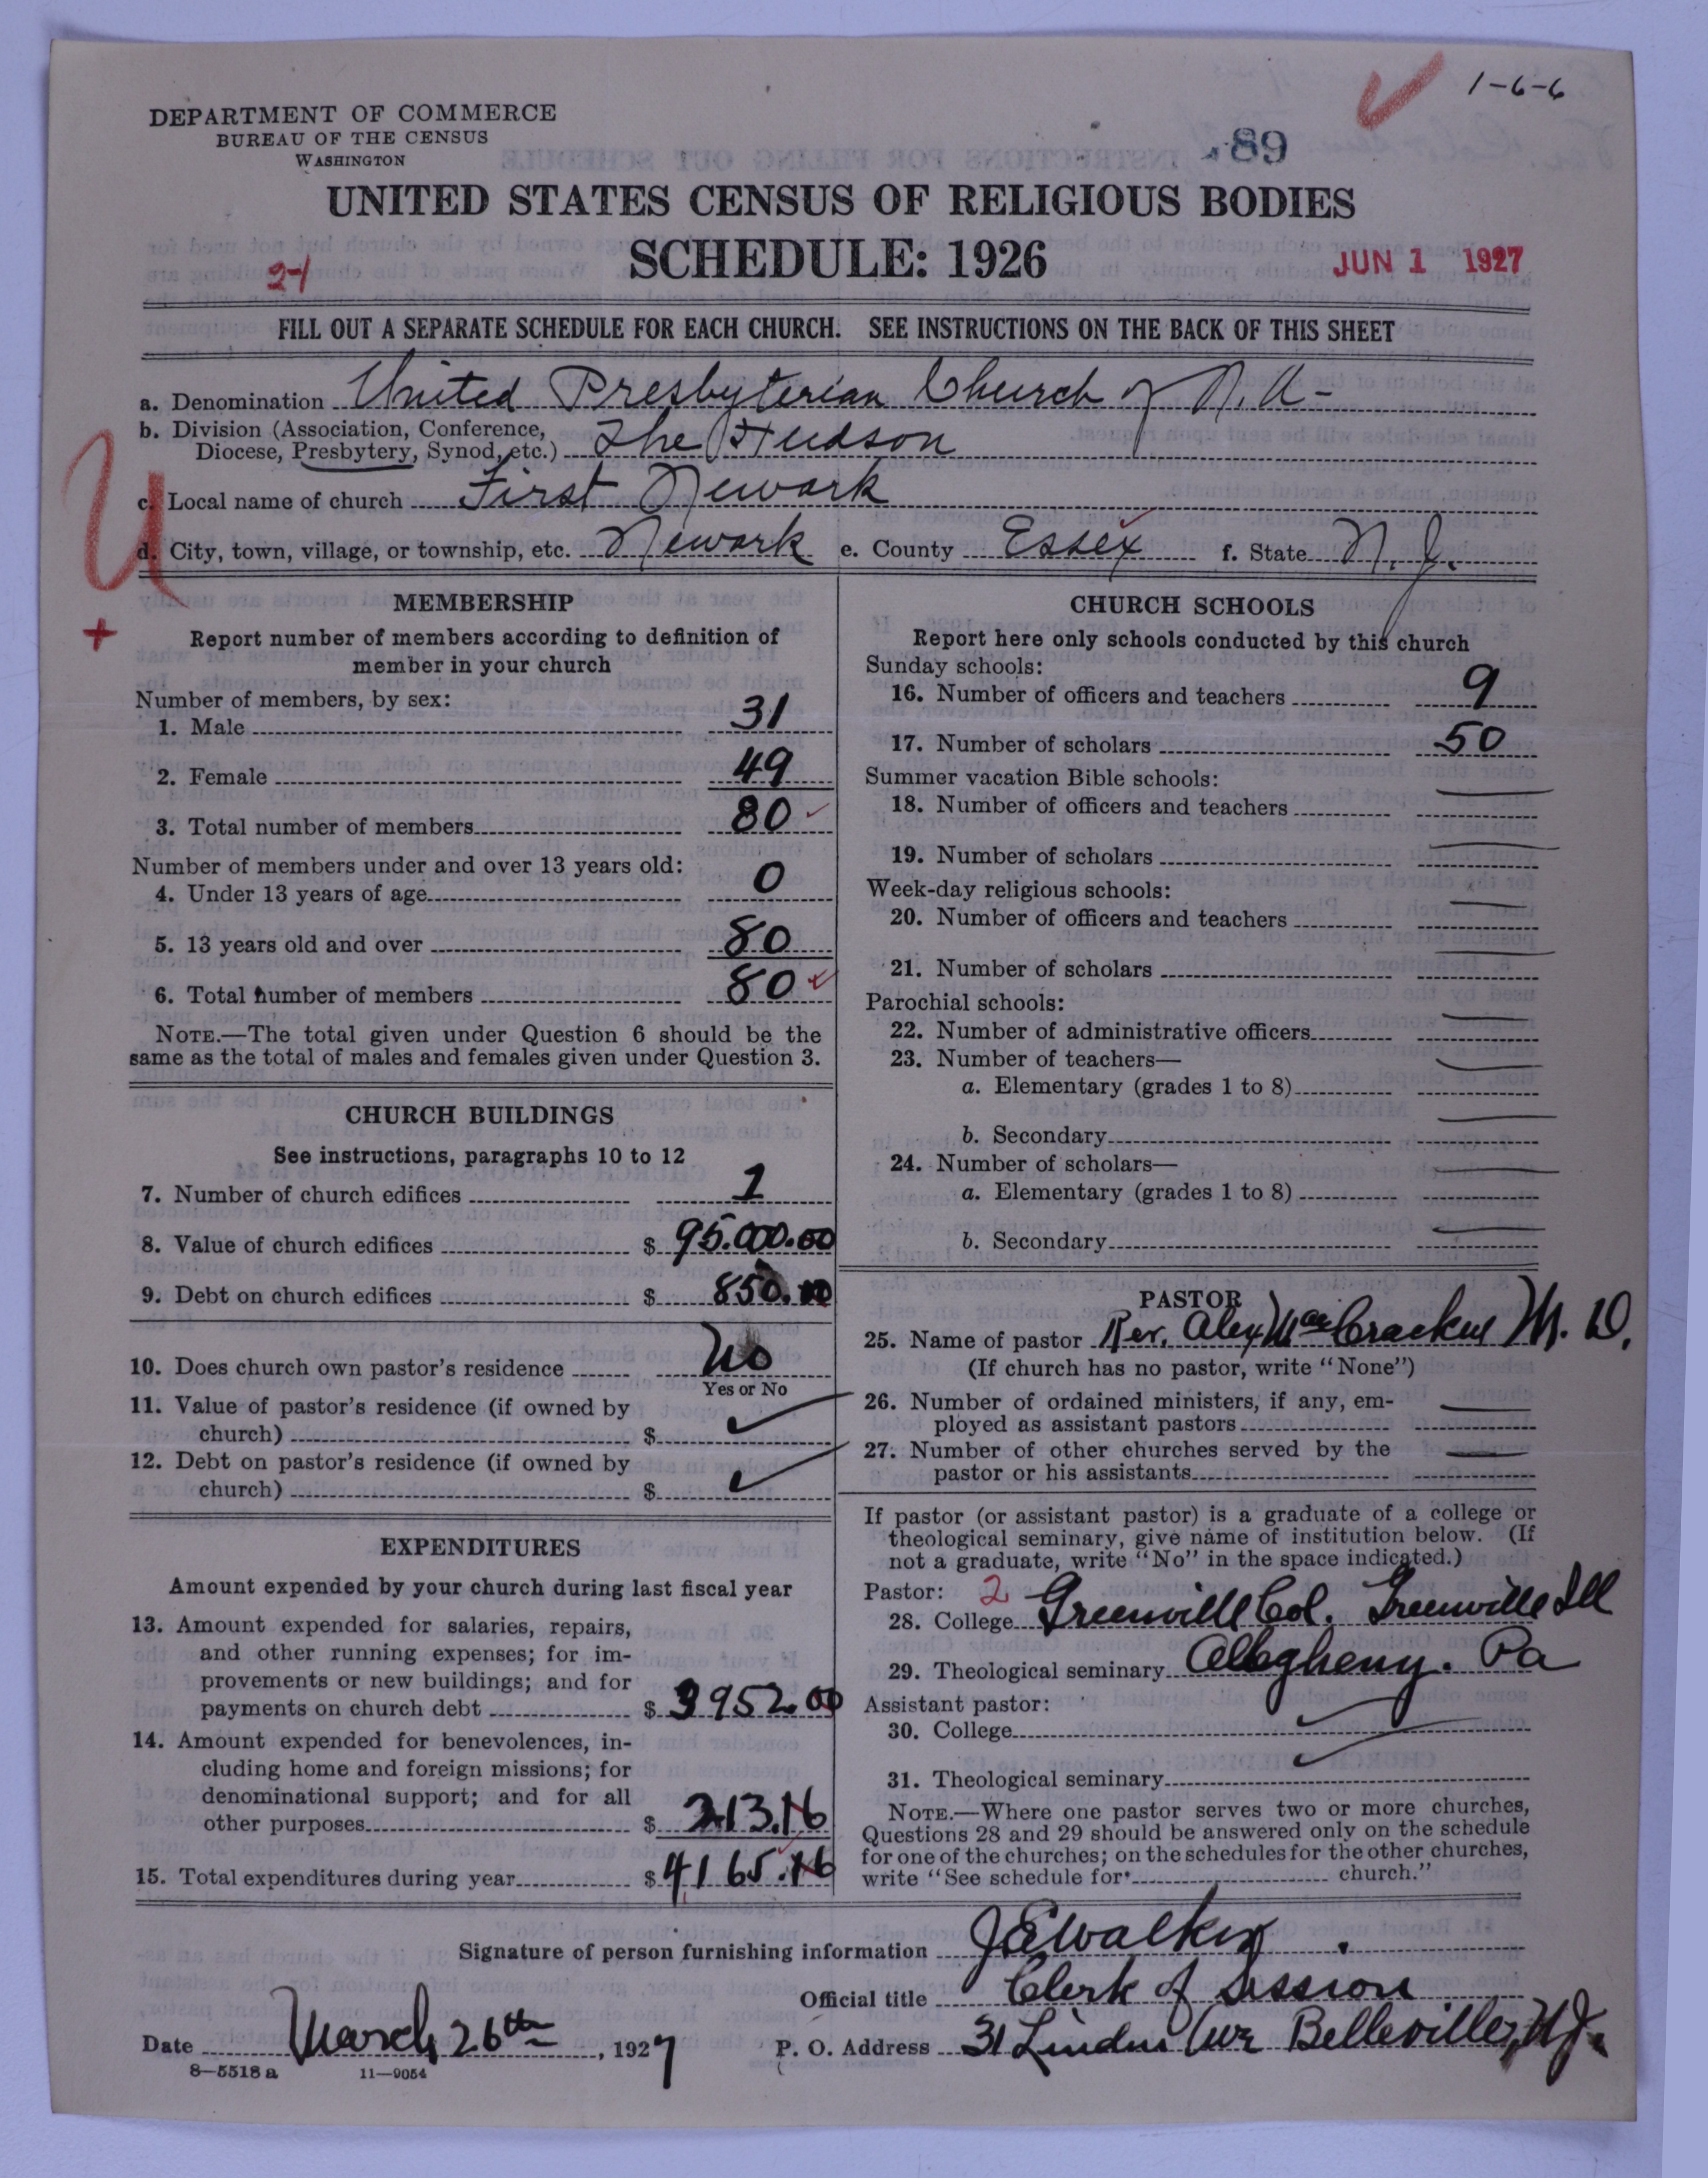 1-6-6
DEPARTMENT OF COMMERCE
BUREAU OF THE CENSUS
WASHINGTON
89
UNITED STATES CENSUS OF RELIGIOUS BODIES
SCHEDULE: 1926
JUN 1 1927
21
FILL OUT A SEPARATE SCHEDULE FOR EACH CHURCH. SEE INSTRUCTIONS ON THE BACK OF THIS SHEET
a. Denomination United Presbyterian Church of N.A-
b. Division (Association, Conference,
Diocese, Presbytery, Synod, etc.) The Hudson
c. Local name of church First Newark
U
d. City, town, village, or township, etc. Newark e. County Essex f. State N.J.
+
MEMBERSHIP
Report number of members according to definition of
member in your church
Number of members, by sex:
1. Male 31
2. Female 49
3. Total number of members 80
Number of members under and over 13 years old:
4. Under 13 years of age 0
5. 13 years old and over 80
6. Total number of members 80
NOTE.—The total given under Question 6 should be the
same as the total of males and females given under Question 3.
CHURCH BUILDINGS
See instructions, paragraphs 10 to 12
7. Number of church edifices 1
8. Value of church edifices $ 95.000.00
9. Debt on church edifices $ 850.00
10. Does church own pastor's residence No
Yes or No
11. Value of pastor's residence (if owned by
church) $
12. Debt on pastor's residence (if owned by
church) $
EXPENDITURES
Amount expended by your church during last fiscal year
13. Amount expended for salaries, repairs,
and other running expenses; for im-
provements or new buildings; and for
payments on church debt $ 3952.00
14. Amount expended for benevolences, in-
cluding home and foreign missions; for
denominational support; and for all
other purposes $ 213.16
15. Total expenditures during year $ 4165.16
CHURCH SCHOOLS
Report here only schools conducted by this church
Sunday schools:
16. Number of officers and teachers 9
17. Number of scholars 50
Summer vacation Bible schools:
18. Number of officers and teachers
19. Number of scholars
Week-day religious schools:
20. Number of officers and teachers
21. Number of scholars
Parochial schools:
22. Number of administrative officers
23. Number of teachers—
a. Elementary (grades 1 to 8)
b. Secondary
24. Number of scholars—
a. Elementary (grades 1 to 8)
b. Secondary
PASTOR
25. Name of pastor Rev. Alex MacCracken M. D.
(If church has no pastor, write "None")
26. Number of ordained ministers, if any, em-
ployed as assistant pastors
27. Number of other churches served by the
pastor or his assistants
If pastor (or assistant pastor) is a graduate of a college or
theological seminary, give name of institution below. (If
not a graduate, write "No" in the space indicated.)
Pastor: 2
28. College Greenville Col. Greenville Ill
29. Theological seminary Allegheny. Pa
Assistant pastor:
30. College
31. Theological seminary
NOTE.—Where one pastor serves two or more churches,
Questions 28 and 29 should be answered only on the schedule
for one of the churches; on the schedules for the other churches,
write "See schedule for church."
Signature of person furnishing information J E Walker
Official title Clerk of Session
Date March 26th, 1927 P. O. Address 31 Linden Ave Belleville, N.J.
8—5518 a 11—9054